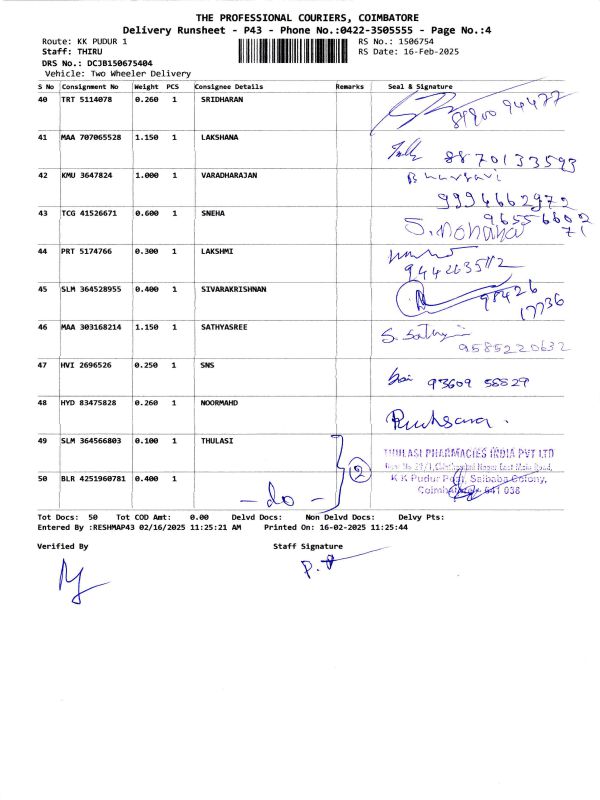 THE PROFESSIONAL COURIERS, COIMBATORE
Delivery Runsheet - P43 - Phone No.:0422-3505555 - Page No.:4
Route: KK PUDUR 1 RS No.: 1506754
Staff: THIRU RS Date: 16-Feb-2025
DRS No.: DCJB150675404
Vehicle: Two Wheeler Delivery
S No Consignment No Weight PCS Consignee Details Remarks Seal & Signature
40 TRT 5114078 0.260 1 SRIDHARAN
41 MAA 707065528 1.150 1 LAKSHANA 8870133593
42 KMU 3647824 1.000 1 VARADHARAJAN Bhargavi
9994662972
43 TCG 41526671 0.600 1 SNEHA S. Mohana 96556602
71
44 PRT 5174766 0.300 1 LAKSHMI
45 SLM 364528955 0.400 1 SIVARAKRISHNAN 98426
17736
46 MAA 303168214 1.150 1 SATHYASREE S. Sathya
9585220632
47 HVI 2696526 0.250 1 SNS Sai 93609 58829
48 HYD 83475828 0.260 1 NOORMAHD Ruhsana.
49 SLM 364566803 0.100 1 THULASI THULASI PHARMACIES INDIA PVT LTD
50 BLR 4251960781 0.400 1 - do - 2 K K Pudur Post, Saibaba Colony,
Coimbatore 641 038
Tot Docs: 50 Tot COD Amt: 0.00 Delvd Docs: Non Delvd Docs: Delvy Pts:
Entered By :RESHMAP43 02/16/2025 11:25:21 AM Printed On: 16-02-2025 11:25:44
Verified By Staff Signature